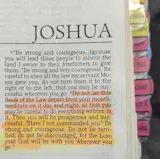 JOSHUA
"Be strong and courageous, because
you will lead these people to inherit the
land I swore to their forefathers to give
them. "Be strong and very courageous. Be
careful to obey all the law my servant Mo-
ses gave you, do not turn from it to the
right or to the left, that you may be suc-
cessful wherever you go. "Do not let this
Book of the Law depart from your mouth;
meditate on it day and night, so that you
may be careful to do everything written in
it. Then you will be prosperous and suc-
cessful. "Have I not commanded you? Be
strong and courageous. Do not be terri-
fied; do not be discouraged, for the LORD
your God will be with you wherever you
go."